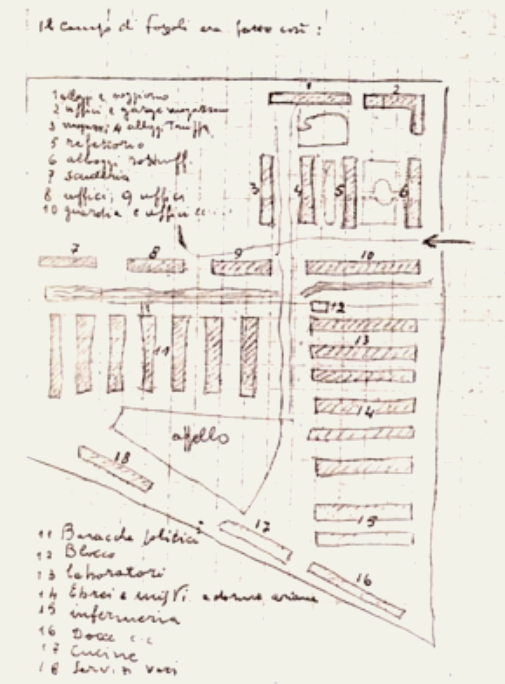 Il campo di Fossoli era fatto così:
1 alloggi e soggiorno
2 uffici e garage magazzino
3 magazz; 4 alloggi Truppa
5 refettorio
6 alloggi sottuff.
7 scuderia
8 uffici; 9 uffici
10 guardia e uffici
1
2
3
4
5
6
7
8
9
10
11
12
13
11
14
appello
18
17
15
16
11 Baracche politici
12 Blocco
13 laboratori
14 Ebrei e misti e donne ariane
15 infermeria
16 Docce
17 Cucine
18 Servizi vari